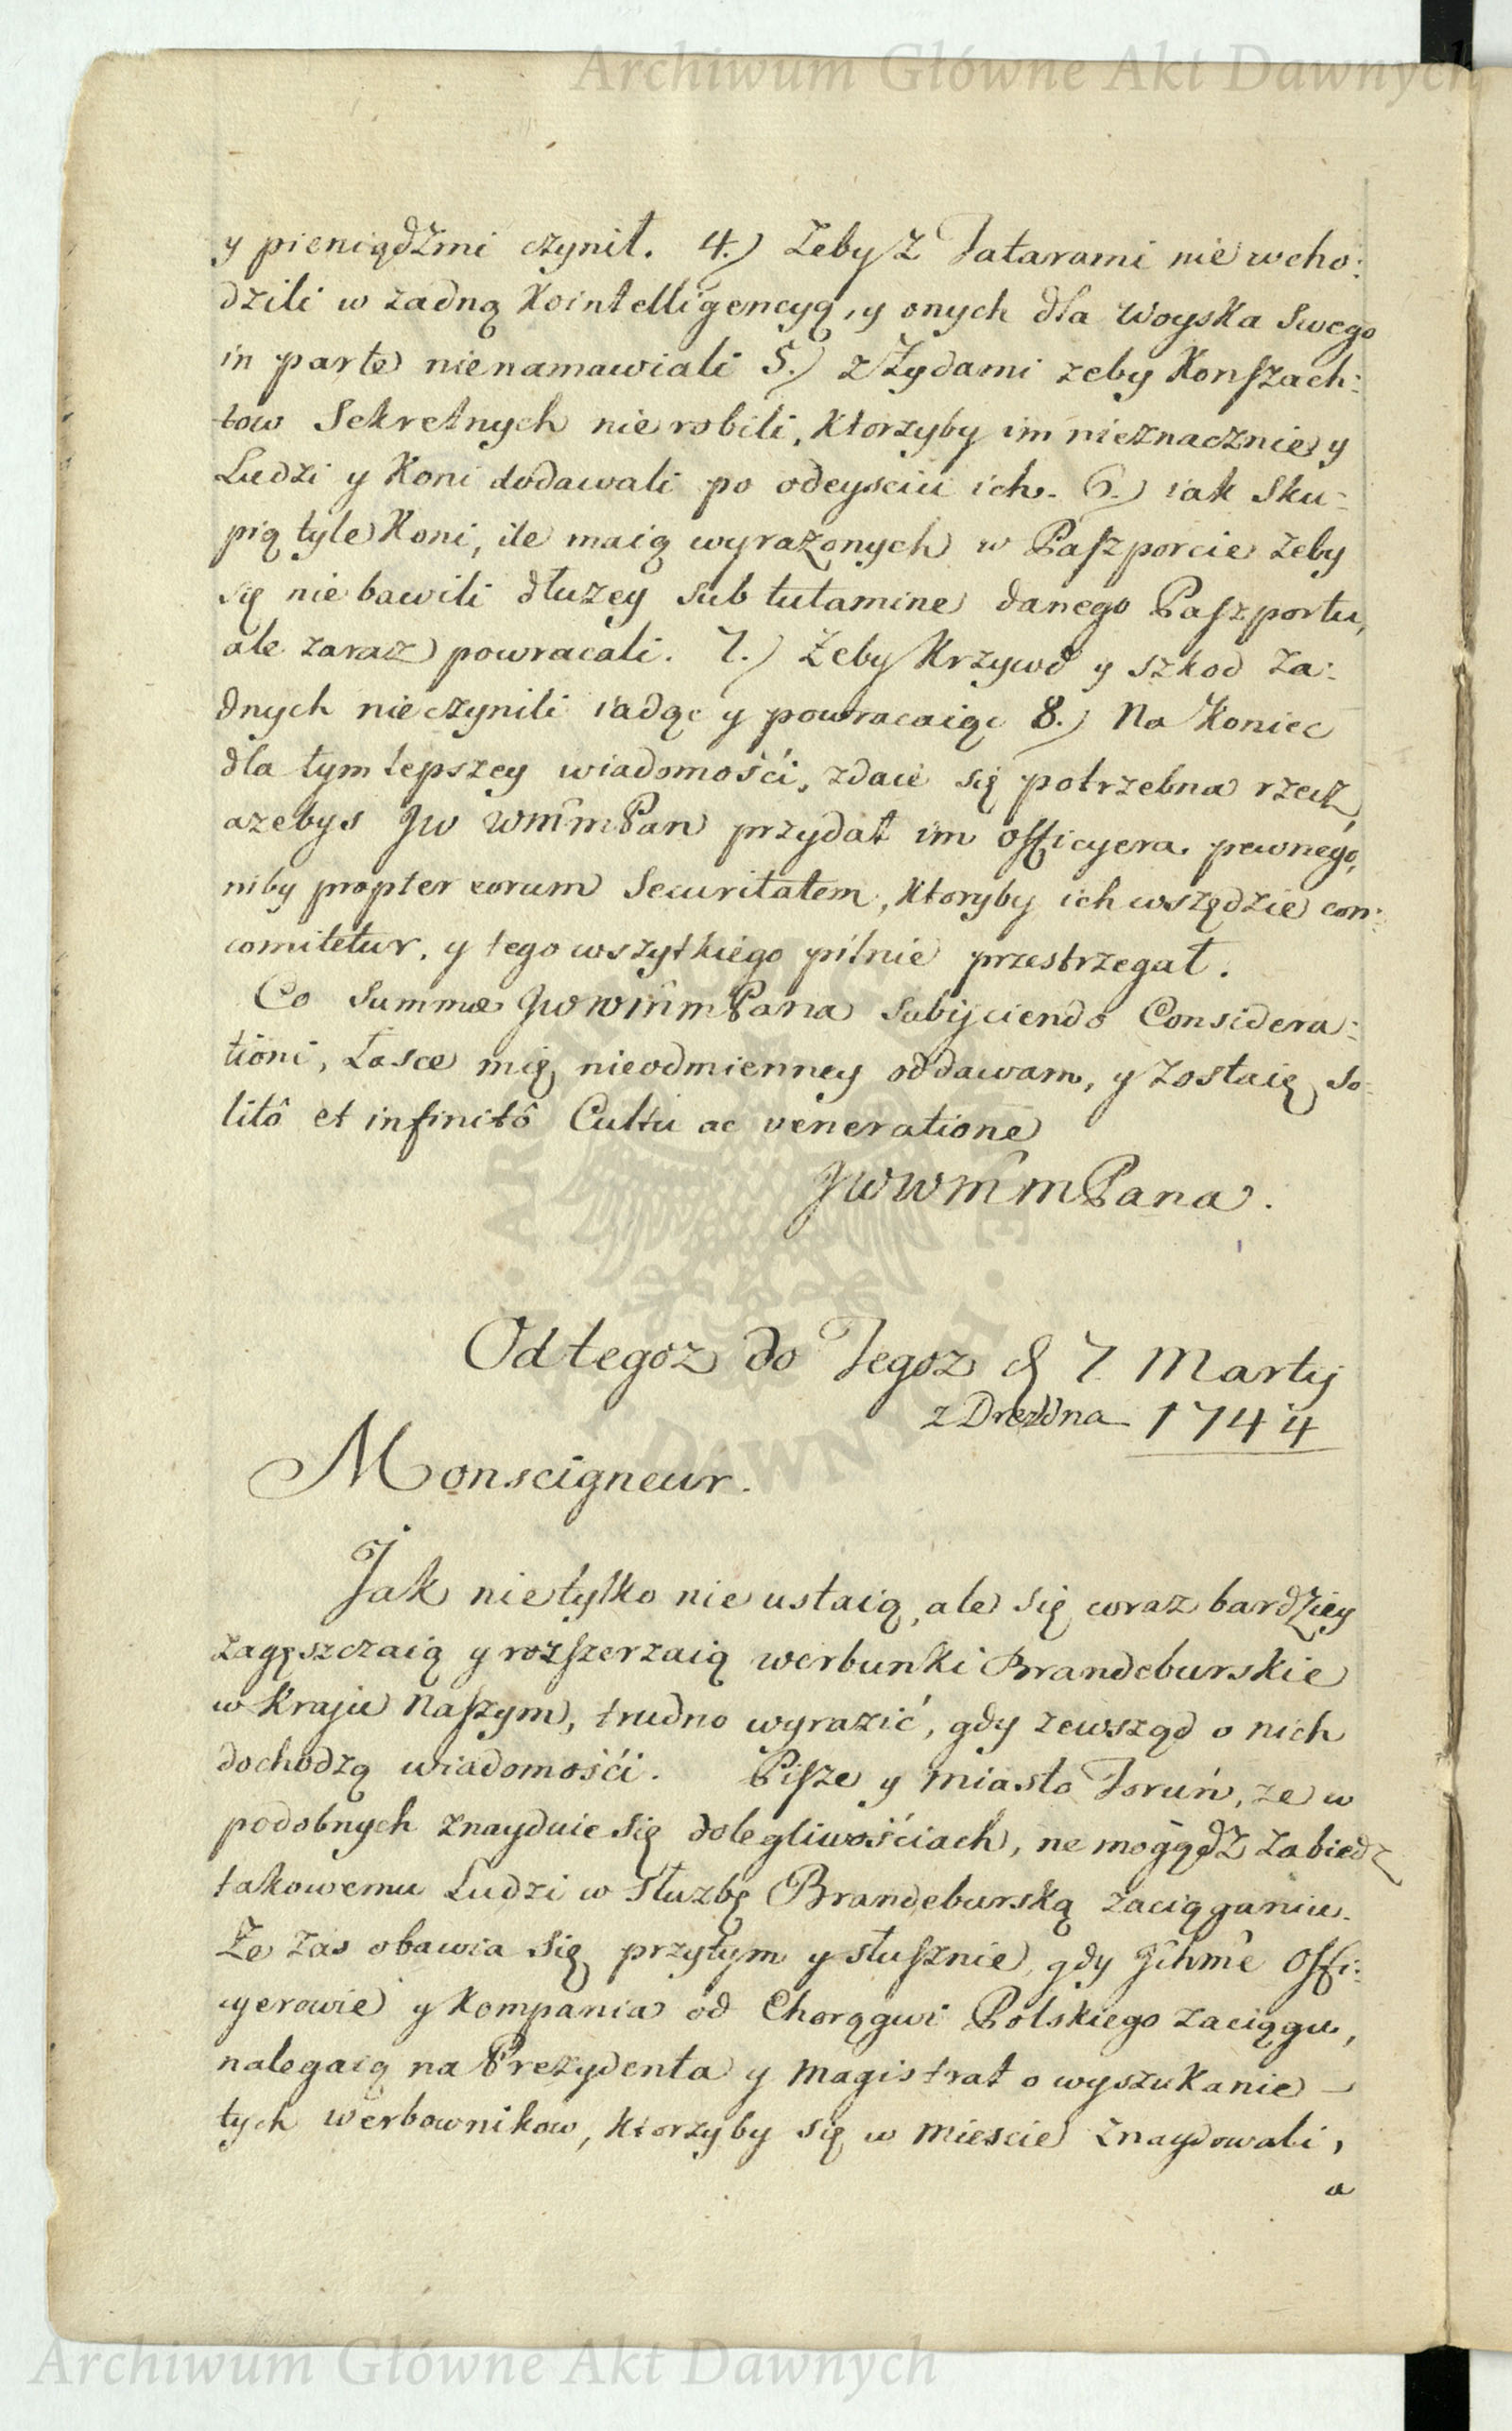 Archiwum Główne Akt Dawnych
y pieniądzmi czynił. 4.) Zeby z Tatarami nie wcho:
dzili w zadną Kointelligencyą, y onych dla Woyska Swego
in parte nienamawiali 5.) z Zydami zeby Konszach:
tow Sekretnych nie robili, Ktorzyby im nieznacznie y
Ludzi y Koni dodawali po odeysciu ich. 6.) iak Sku:
pią tyle Koni, ile maią wyrazonych w Paszporcie zeby
się nie bawili dłuzey sub tutamine danego Paszportu,
ale zaraz powracali. 7.) Zeby Krzywd y szkod Za:
dnych nieczynili iadąc y powracaiąc 8.) Na Koniec
dla tym lepszey wiadomośći, zdaie się potrzebna rzecz,
azebys JW WMM Pan przydał im officyera pewnego,
niby propter eorum Securitatem, Ktoryby ich wszędzie con:
comitetur, y tego wszytkiego pilnie przestrzegał.
Co Summæ JWWMM Pana Subijciendo Considera:
tioni, Łasce mię nieodmienney oddawam, y zostaię So:
litô et infinitô Cultu ac veneratione
JWWMM Pana.
Od tegoz do Tegoz d 7 Martij
z Drezdna 1744
Monseigneur.
Jak nie tylko nie ustaią, ale się coraz bardziey
zagęszczaią y rozszerzaią werbunki Brandeburskie
w Kraju Naszym, trudno wyrazić, gdy zewsząd o nich
dochodzą wiadomośći. Pisze y miasto Toruń, ze w
podobnych znayduie się dolegliwośćiach, ne mogądz zabiedz
takowemu Ludzi w Służbę Brandeburską zaciąganiu.
Ze zas obawia się przytym y słusznie, gdy Ichmć Offi:
cyerowie y Kompania od Chorągwi Polskiego zaciągu,
nalegaią na Prezydenta y Magistrat o wyszukanie
tych Werbownikow, ktorzyby się w miescie znaydowali,
a
Archiwum Główne Akt Dawnych